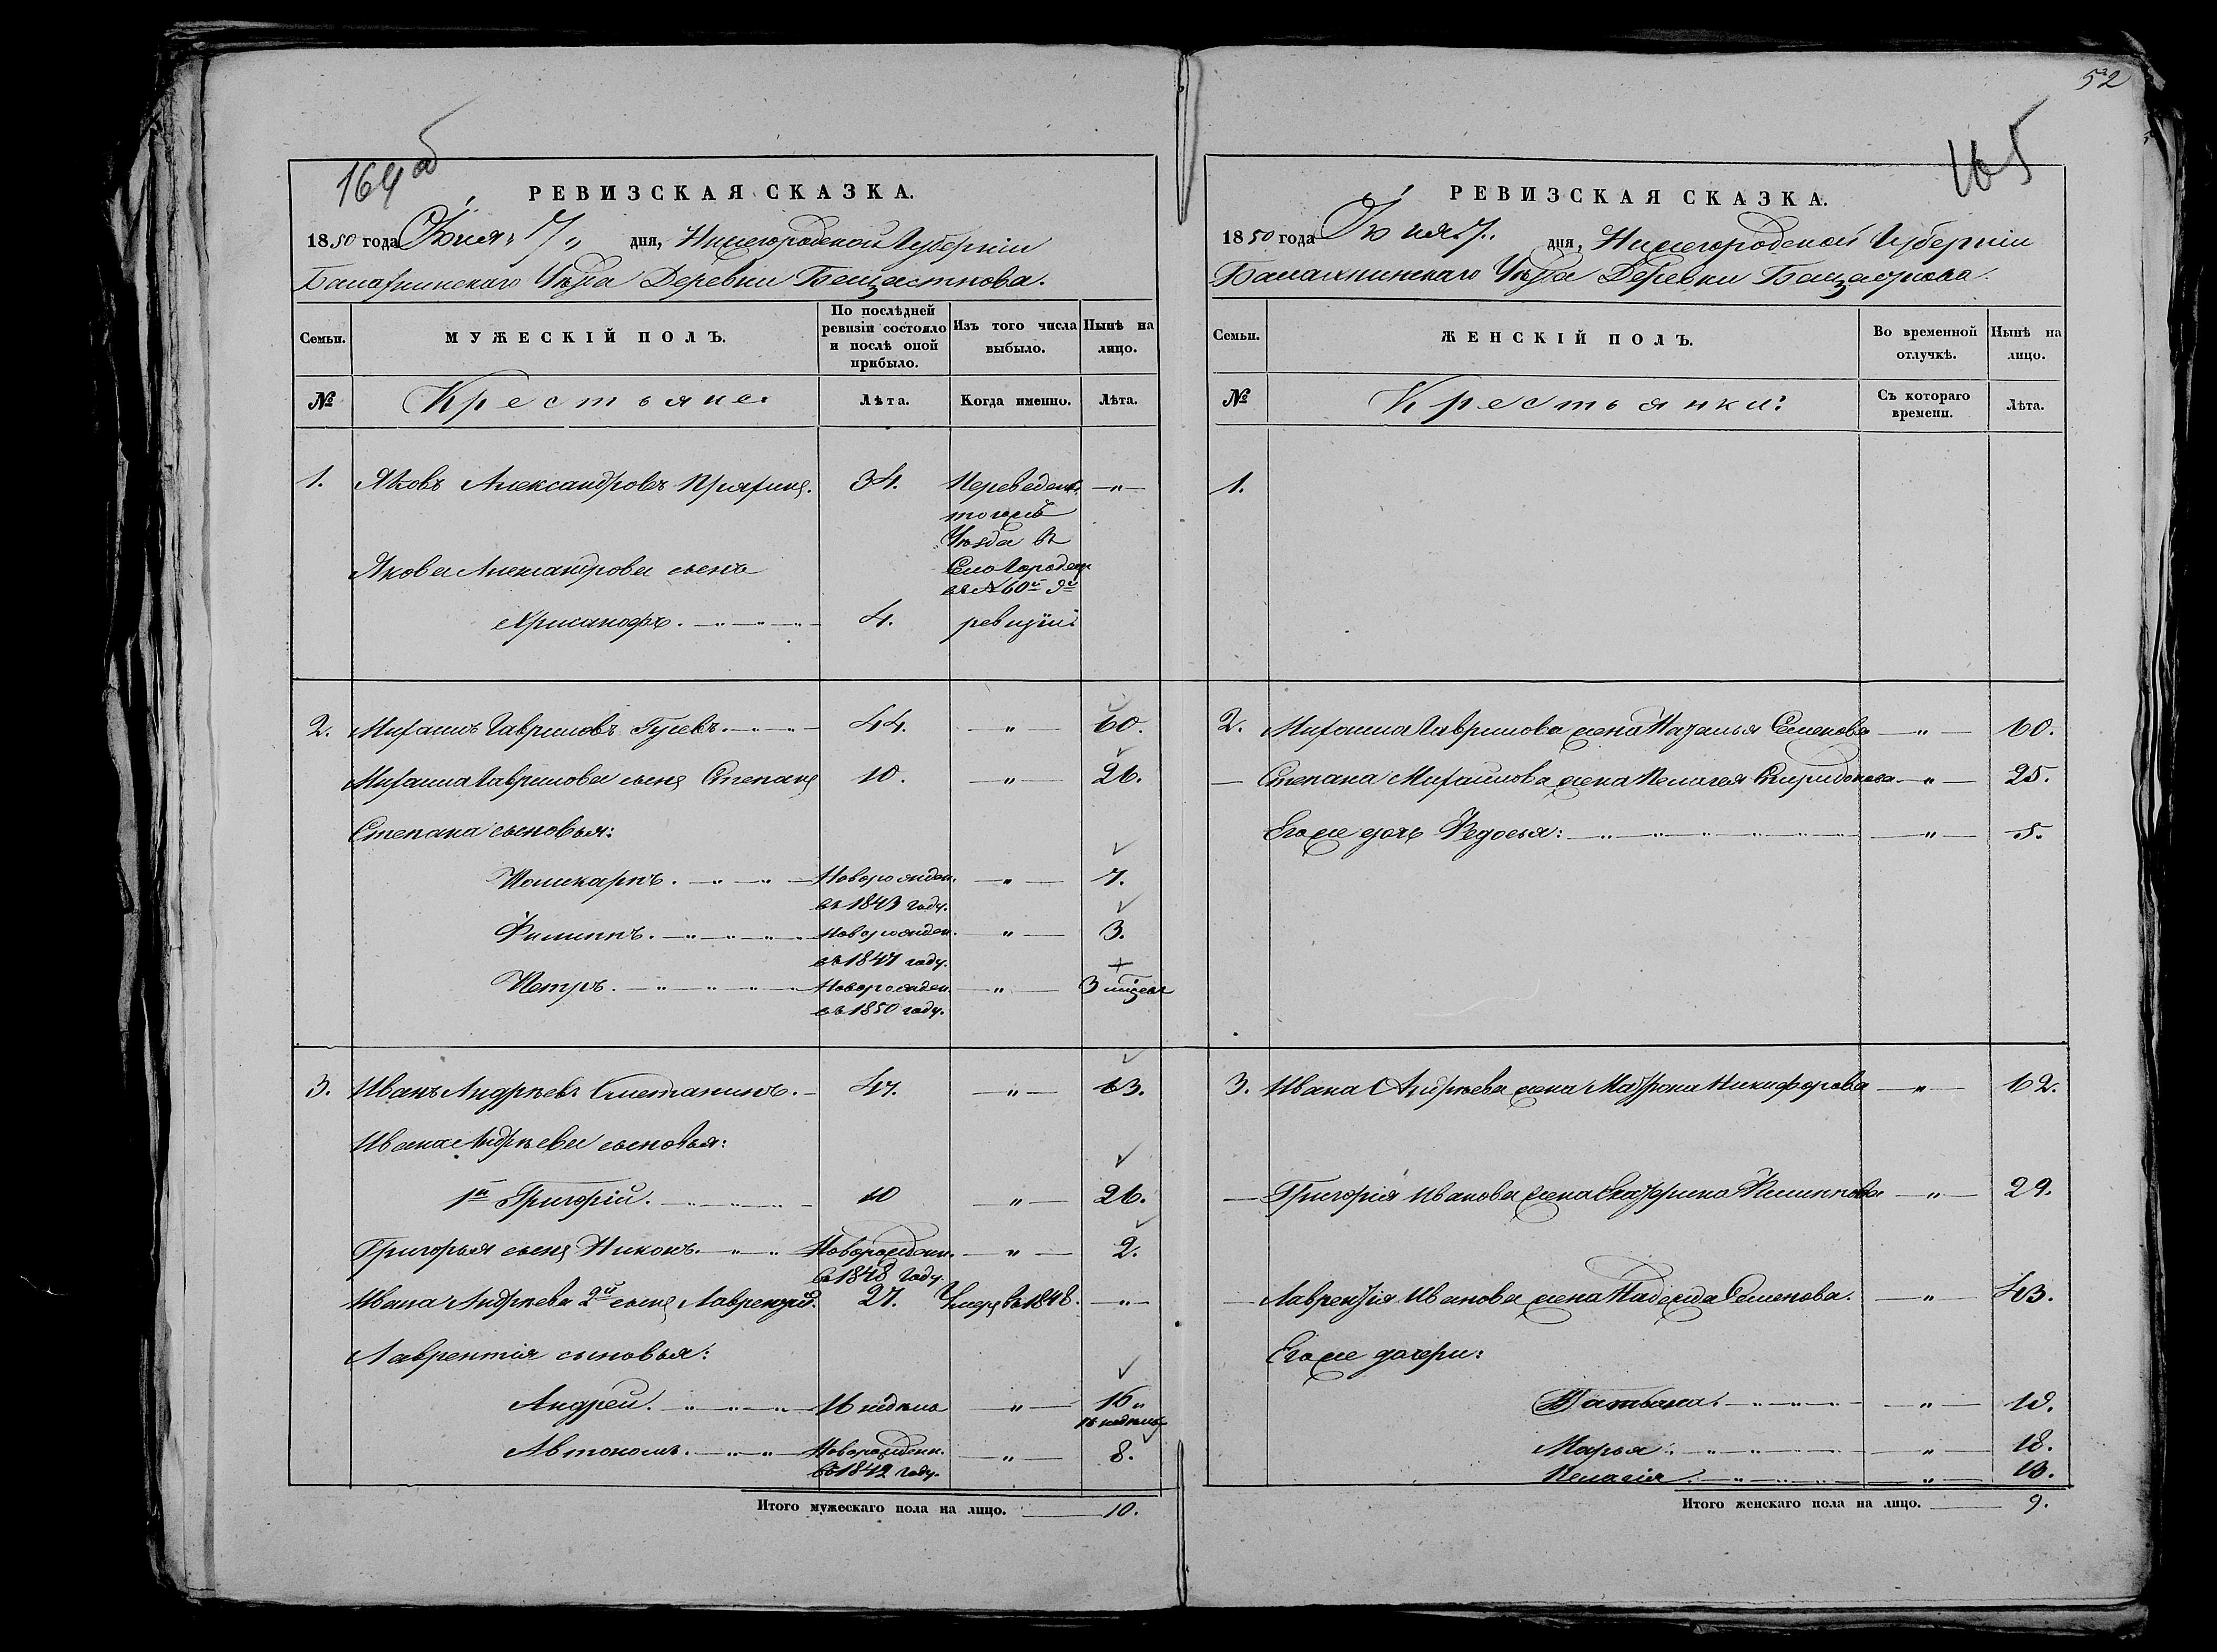 52
164 об
165
РЕВИЗСКАЯ СКАЗКА.
1850 года Юня 7 дня, Нижегородской Губерніи
Балахнинскаго Уѣзда Деревни
Семьи. МУЖЕСКІЙ ПОЛЪ. По послѣдней ревизіи состояло и послѣ оной прибыло. Изъ того числа выбыло. Нынѣ на лицо.
№ Крестьяне: Лѣта. Когда именно. Лѣта.
1. Яковъ Александровъ 34. Переведен. —"—
тогожъ
Уѣзда въ
Якова Александрова сынъ Село Городец
въ № 60й 9й
Хрисанфъ. 4. ревизіи
2. Михаилъ Гавриловъ Гусевъ. 44. —"— 60.
Михаила Гаврилова сынъ Степанъ 10. —"— 26.
Степана сыновья:
Поликарпъ. Новорожден. —"— 7.
въ 1843 году.
Филиппъ. Новорожден. —"— 3.
въ 1847 году.
Петръ. Новорожден. —"— 3 мѣсец
въ 1850 году.
3. Иванъ Андрѣевъ Сметанинъ. 47. —"— 63.
Ивана Андрѣева сыновья:
1й Григорій. 10 —"— 26.
Григорья сынъ Никонъ. Новорожден. —"— 2.
въ 1848 году.
Ивана Андрѣева 2й сынъ Лаврентій. 27. Умеръ въ 1848. —"—
Лаврентія сыновья:
Андрей. 16 недѣль —"— 16
16 недѣль
Автономъ. Новорожденн. —"— 8.
въ 1842 году.
Итого мужескаго пола на лицо. 10.
РЕВИЗСКАЯ СКАЗКА.
1850 года Юня 7. дня, Нижегородской Губерніи
Балахнинскаго Уѣзда Деревни
Семьи. ЖЕНСКІЙ ПОЛЪ. Во временной отлучкѣ. Нынѣ на лицо.
№ Крестьянки: Съ котораго времени. Лѣта.
1.
2. Михаила Гаврилова жена Наталья Семенова —"— 60.
— Степана Михаилова жена Пелагея Спиридонова —"— 25.
Егоже дочь Федосья: —"— 5.
3. Ивана Андрѣева жена Матрона Никифорова —"— 62.
— Григорія Иванова жена Екатерина Филиппова —"— 29.
— Лаврентія Иванова жена Надежда Семенова. —"— 43.
Егоже дочери:
Татьяна: —"— 19.
Марья: —"— 18.
Пелагія —"— 13.
Итого женскаго пола на лицо. 9.